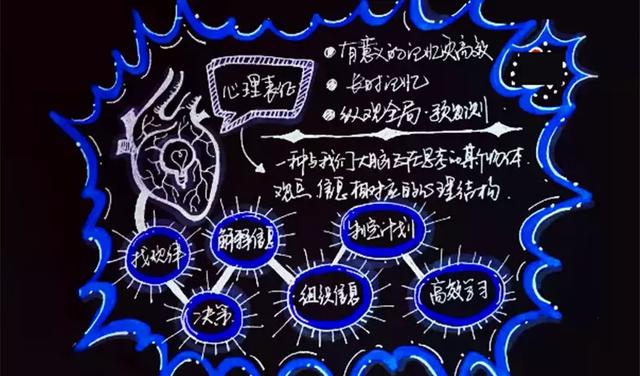 心理表征
有意义的记忆更高效
长时记忆
纵观全局·预测
一种与我们大脑正在思考的某个物体.
观点.信息相对应的心理结构.
找规律
解释信息
制定计划
决策
组织信息
高效学习